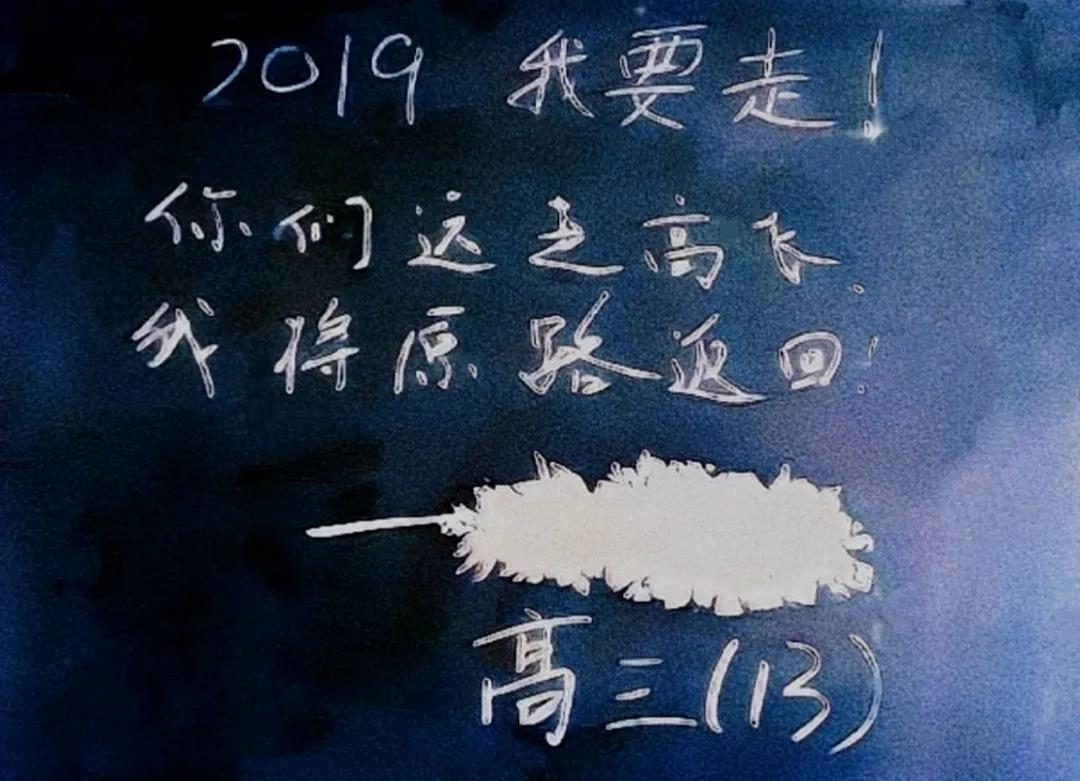 2019 我要走!
你们远走高飞,
我将原路返回!
高三(13)